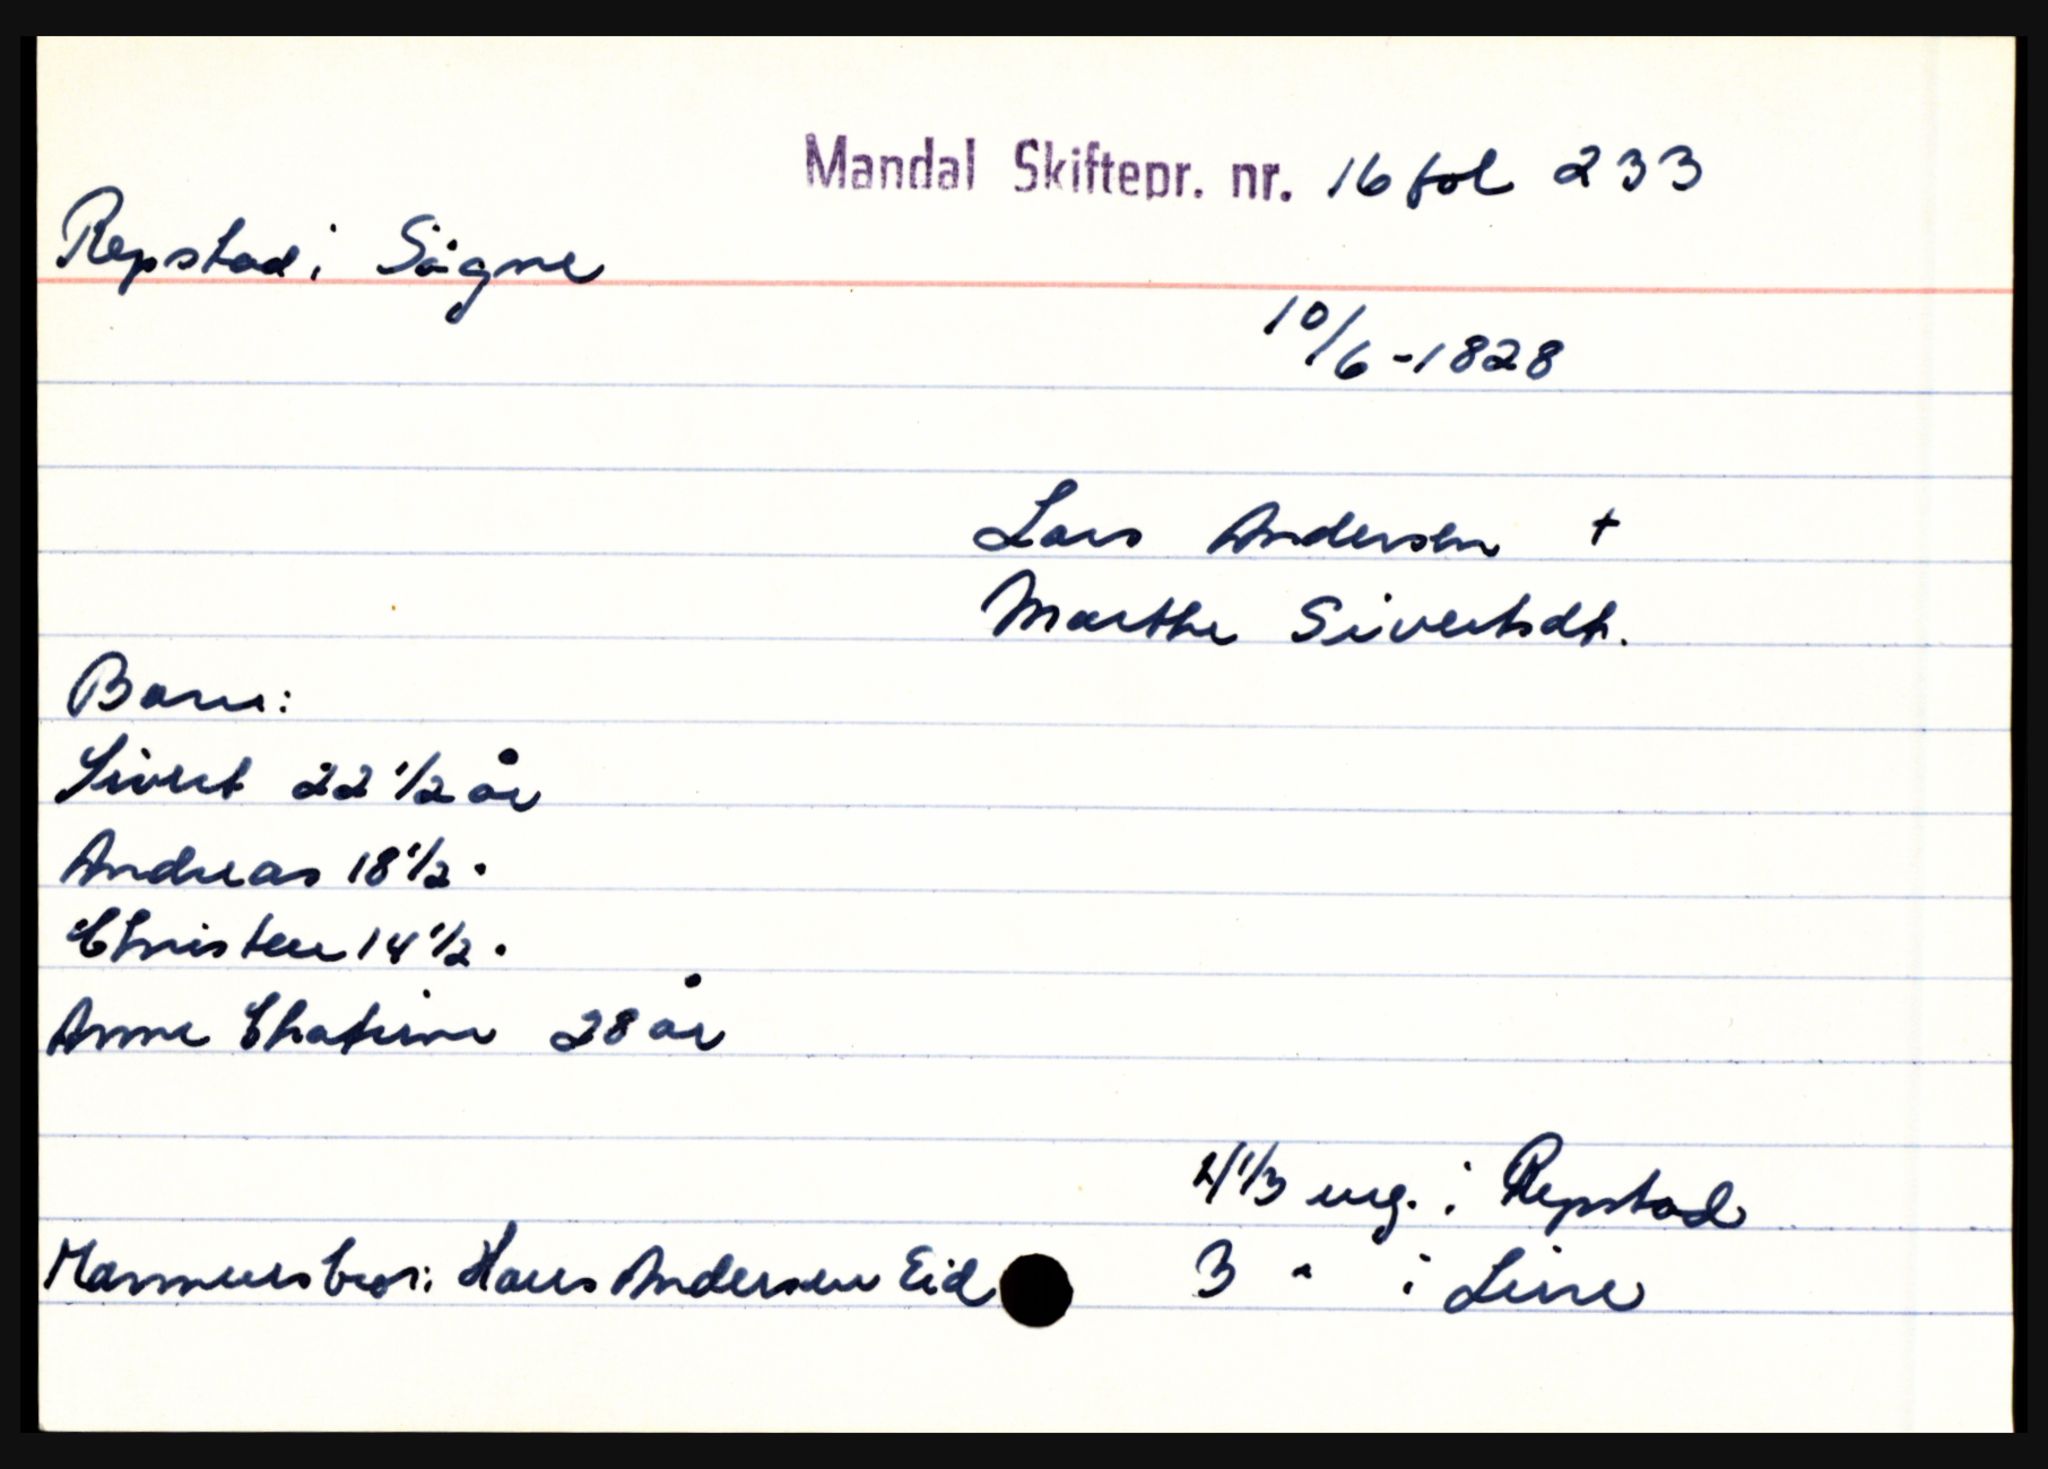 Mandal Skiftepr. nr. 16 fol 233
Repstad i Sögne
10/6-1828
Lars Andersen +
Marthe Sivertsdt.
Barn:
Sivert 22 1/2 år
Andreas 18 1/2 "
Christen 14 1/2 "
Anne Chatrine 28 år
4 1/3 mg. i Repstad
Hans Andersen Eid
3 " i Leire